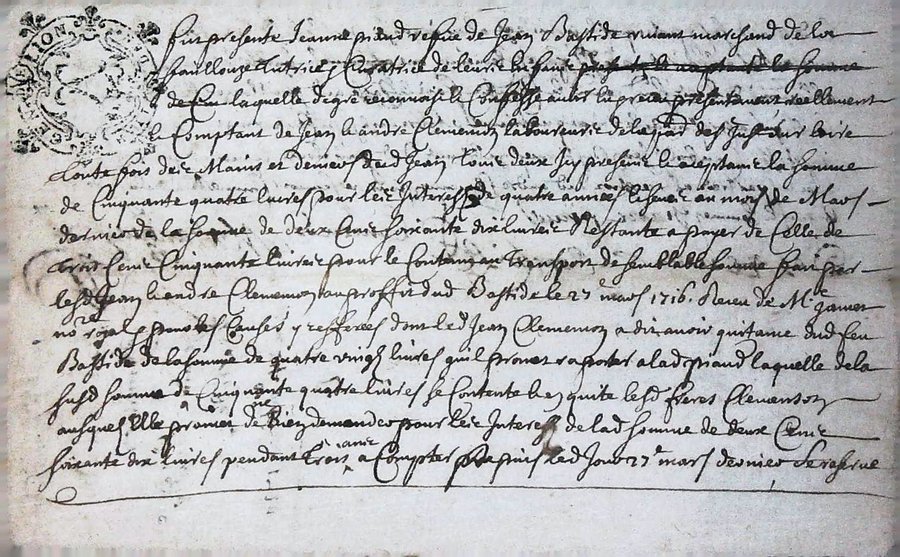 Fut presente Jeanne piaud vefue de Jean Bastide vivant marchand de la
foullouze tutrice y Curatrice de leurs Enfans
de feu laquelle de gré reconnoist & Confesse auoir presentement reellement
& Comptant de Jean leandre Clemenson laboureur de des Just sur loire
toutefois des Mains et deniers dud Jean Louis deux Icy present & aceptant la somme
de Cinquante quatre liures pour les Interests de quatre années Escheue au mois de Mars
dernier de la somme de deux Cens soixante dix liures Restante a payer de Celle de
trois Cens Cinquante liures pour le Contenu au transport de semblable somme fait par
lesd Jean leandre Clemenson au proffit dud Bastide le 27e mars 1716. Receu de Me Janier
nore royal p pour les Causes y refferées dont led Jean Clemenson a dit auoir quitance dud feu
Bastide de la somme de quatre vingt liures quil promet raporter a lad piaud laquelle de la
susd somme de Cinquante quatre liures se Contente & en quite lesd freres Clemenson
ausquels Elle promet de ne Rien demander pour les Interests de lad somme de deux Cens
soixante dix liures pendant trois années a Compter depuis led Jour 27e mars dernier Se reserue